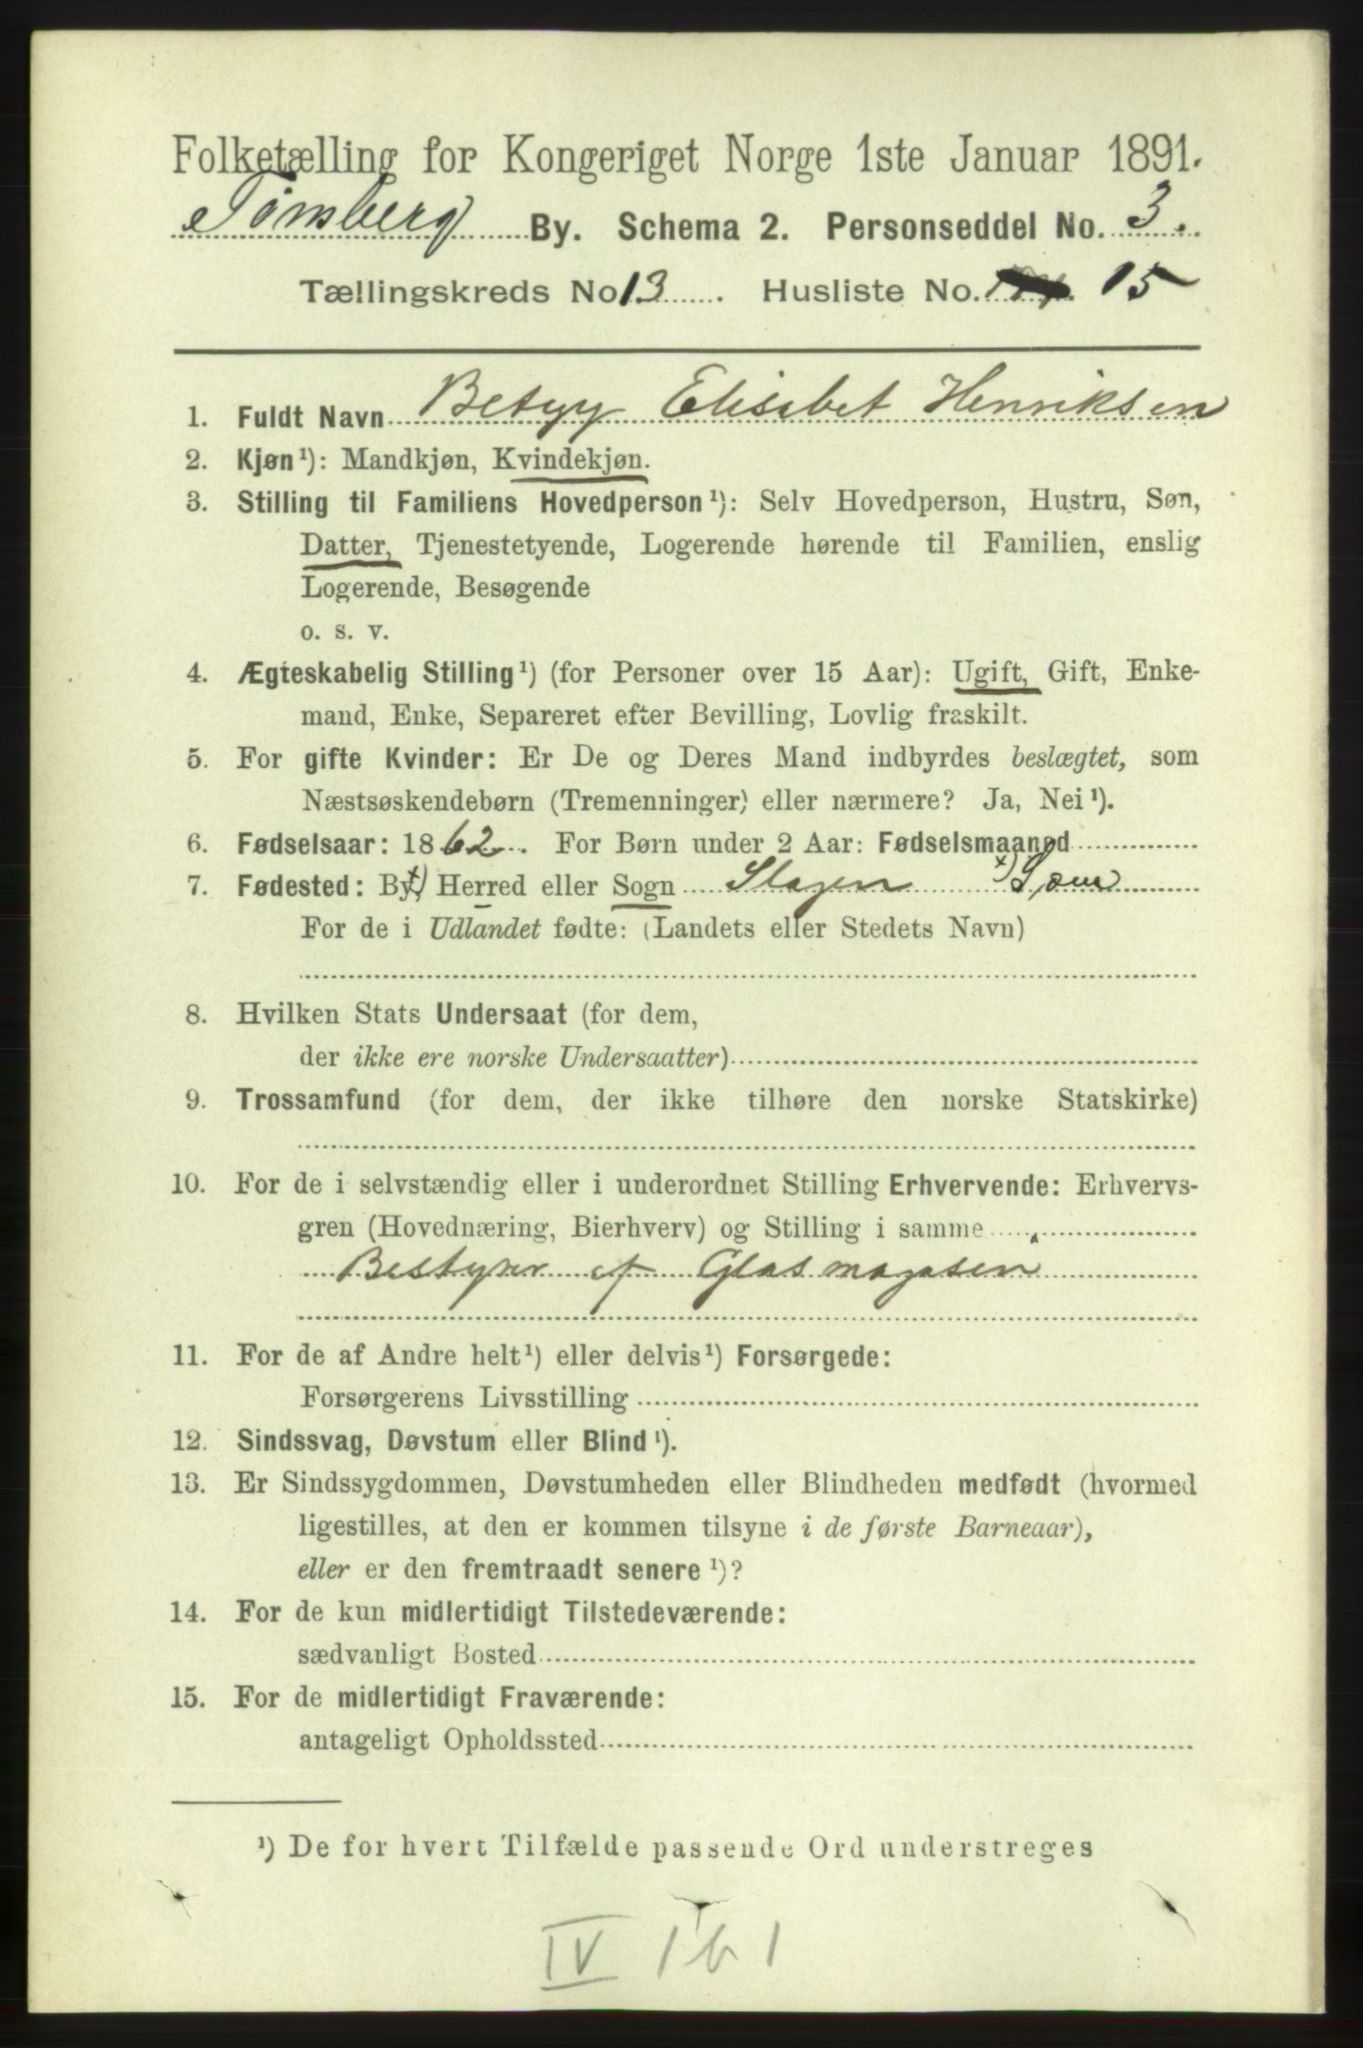 Folketælling for Kongeriget Norge 1ste Januar 1891.
Tønsberg By. Schema 2. Personseddel No. 3.
Tællingskreds No 13. Husliste No. 15
1. Fuldt Navn Betyy Elisabet Henriksen
2. Kjøn¹): Mandkjøn, Kvindekjøn.
3. Stilling til Familiens Hovedperson¹): Selv Hovedperson, Hustru, Søn,
Datter, Tjenestetyende, Logerende hørende til Familien, enslig
Logerende, Besøgende
o. s. v.
4. Ægteskabelig Stilling¹) (for Personer over 15 Aar): Ugift, Gift, Enke-
mand, Enke, Separeret efter Bevilling, Lovlig fraskilt.
5. For gifte Kvinder: Er De og Deres Mand indbyrdes beslægtet, som
Næstsøskendebørn (Tremenninger) eller nærmere? Ja, Nei¹).
6. Fødselsaar: 1862. For Børn under 2 Aar: Fødselsmaaned
7. Fødested: By, Herred eller Sogn Slagen ×) Sæm
For de i Udlandet fødte: (Landets eller Stedets Navn)
8. Hvilken Stats Undersaat (for dem,
der ikke ere norske Undersaatter)
9. Trossamfund (for dem, der ikke tilhøre den norske Statskirke)
10. For de i selvstændig eller i underordnet Stilling Erhvervende: Erhvervs-
gren (Hovednæring, Bierhverv) og Stilling i samme
Bestyrer af Glasmagasen
11. For de af Andre helt¹) eller delvis¹) Forsørgede:
Forsørgerens Livsstilling
12. Sindssvag, Døvstum eller Blind¹).
13. Er Sindssygdommen, Døvstumheden eller Blindheden medfødt (hvormed
ligestilles, at den er kommen tilsyne i de første Barneaar),
eller er den fremtraadt senere¹)?
14. For de kun midlertidigt Tilstedeværende:
sædvanligt Bosted
15. For de midlertidigt Fraværende:
antageligt Opholdssted
¹) De for hvert Tilfælde passende Ord understreges
IV 1 b 1